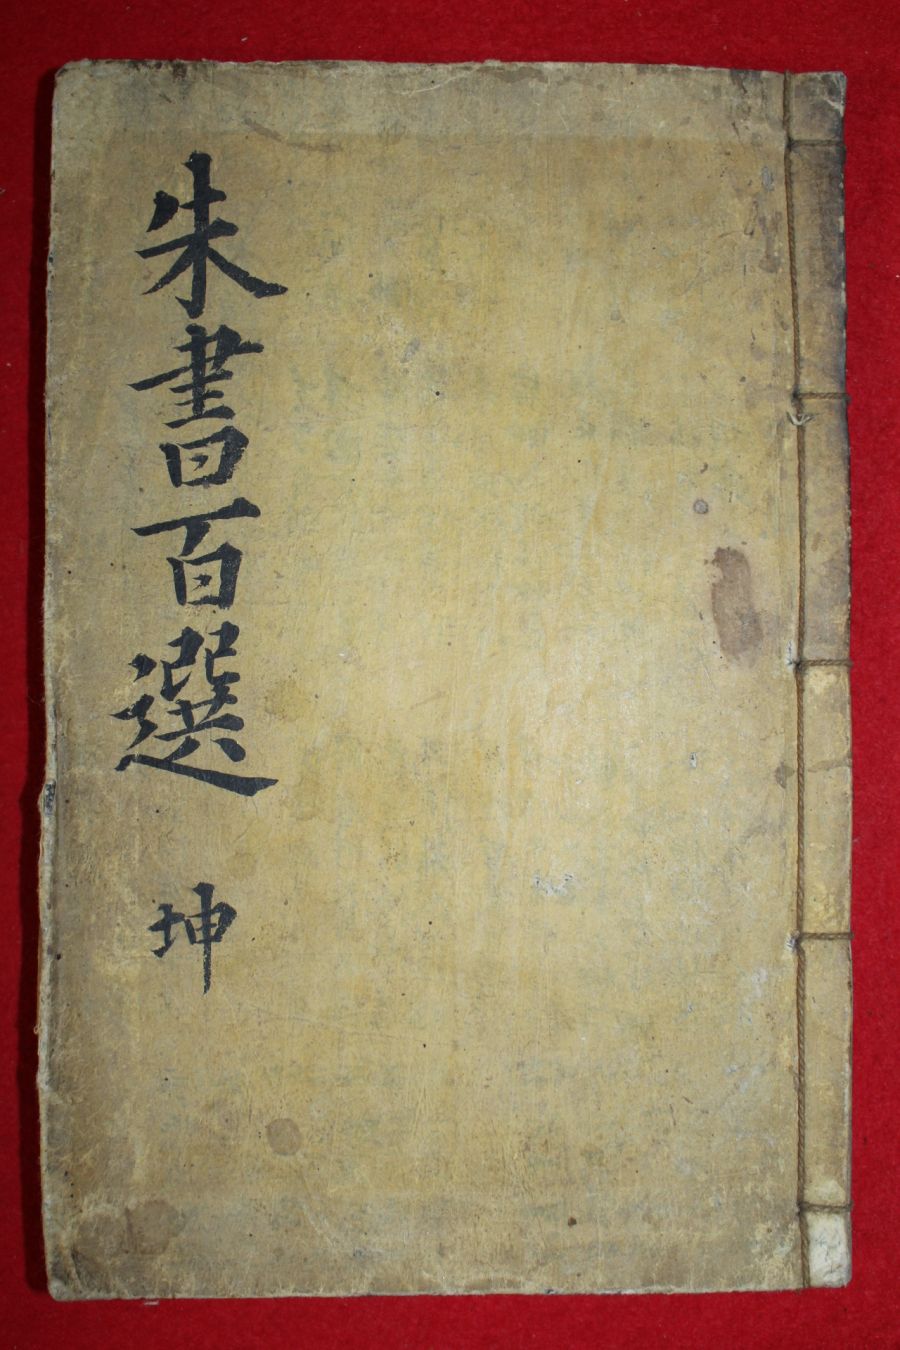 朱書百選 坤